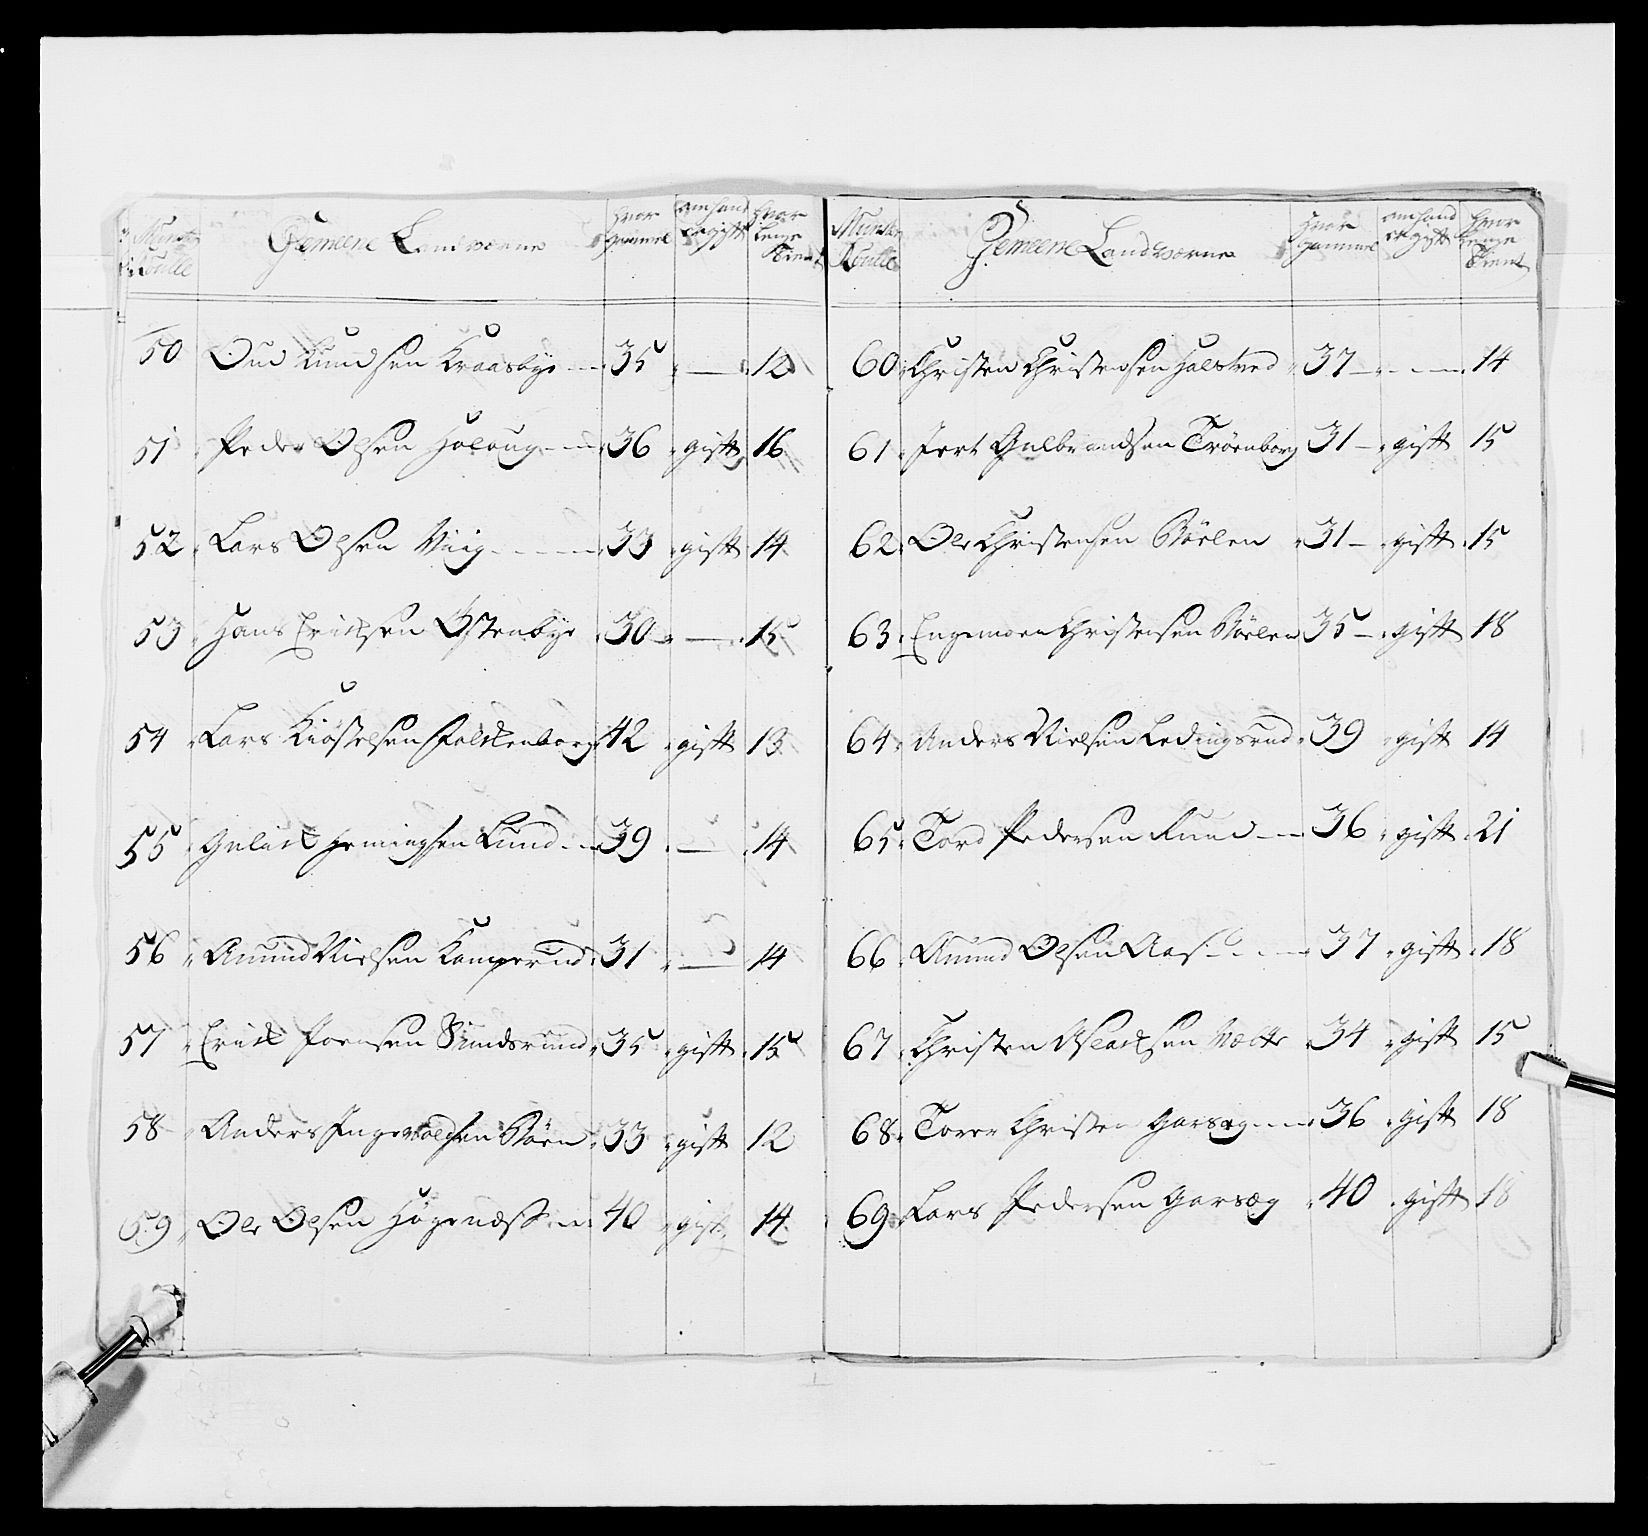 Munst: Rulle | Gemeene Landværne | Hvor gammel | om hand er gift | Hvor lenge Tient
50 Oud Knudsen Kraasbye 35 — 12
51 Peder Olsen Holoug 36 gift 16
52 Lars Olsen Viig 33 gift 14
53 Hans Ericksen Østenbye 30 — 15
54 Lars Kiøstelsen Falckenborg 42 gift 13
55 Gulick Hemingsen Lund 39 — 14
56 Amund Nielsen Kamperud 31 — 14
57 Erick Poensen Sundsrund 35 gift 15
58 Anders Ingevoldsen Røen 33 gift 12
59 Ole Olsen 40 gift 14
Munster Rulle | Gemeene Landværne | Hvor gammel | om hand er gift | Hvor lenge Tient
60 Christen Christensen Halstved 37 — 14
61 Iver Gulbrandsen Trøenborg 31 gift 15
62 Ole Christensen Røelen 31 gift 15
63 Engemoen Christensen Røelen 35 gift 18
64 Anders Nielsen Ledingsrud 39 gift 14
65 Tord Pedersen Ruud 36 gift 21
66 Amund Olsen Aas 37 gift 18
67 Christen Aslacksen Mætte 34 gift 15
68 Torer Christen Garsæg 36 gift 18
69 Lars Pedersen Garsæg 40 gift 18